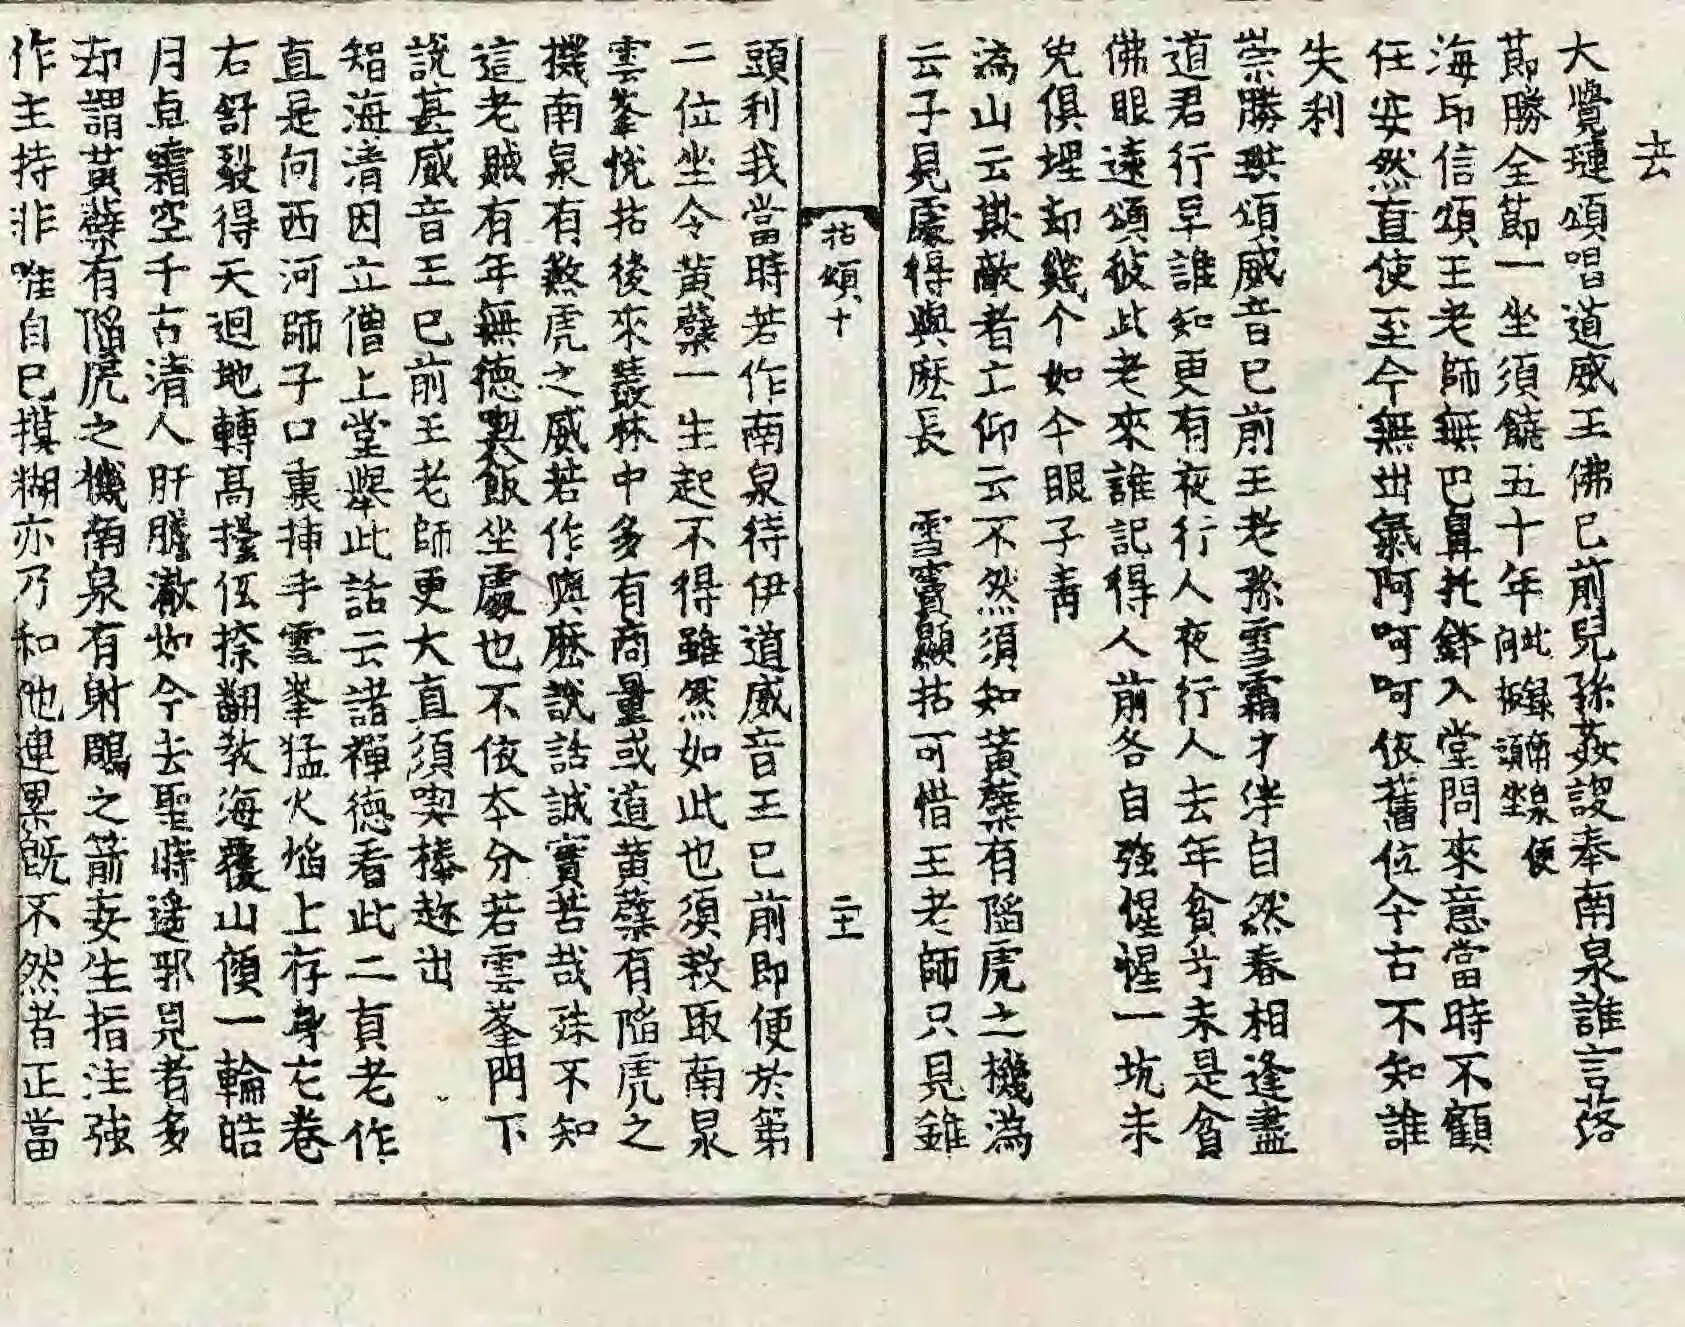 去
大覺璉頌唱道威王佛已前兒孫𡛸謖奉南泉誰言落
莭勝全莭一坐須饒五十年此録南泉便向板頭坐
海印信頌王老師無巴鼻托鉢入堂問來意當時不顧
任安然直使至今無出氣阿呵呵依舊位今古不知誰
失利
崇勝珙頌威音已前王老孫雪霜才伴自然春相逢盡
道君行早誰知更有夜行人夜行人去年貧兮未是貧
佛眼遠頌彼此老來誰記得人前各自強惺惺一坑未
免俱埋却幾个如今眼子青
溈山云欺敵者亡仰云不然須知黃蘗有陷虎之機溈
云子見處得與麽長　雪竇顯拈可惜王老師只見錐
拈頌十　二十一
頭利我當時若作南泉待伊道威音王已前即便於第
二位坐令黃蘗一生起不得雖然如此也須救取南泉
雲峯悅拈後來叢林中多有商量或道黃蘗有陷虎之
機南泉有煞虎之威若作與麽說話誠實苦哉殊不知
這老賊有年無德喫飯坐處也不依本分若雲峯門下
說甚威音王已前王老師更大直須喫棒趂出
智海清因立僧上堂舉此話云諸禪德看此二員老作
直是向西河師子口裏挿手雪峯猛火焰上存身左卷
右舒裂得天迴地轉高擡低捺翻敎海覆山傾一輪皓
月卓霜空千古清人肝膽澈如今去聖時遥邪見者多
却謂黃蘗有陷虎之機南泉有射鵰之箭妄生指注強
作主持非唯自已摸糊亦乃和他連累旣不然者正當